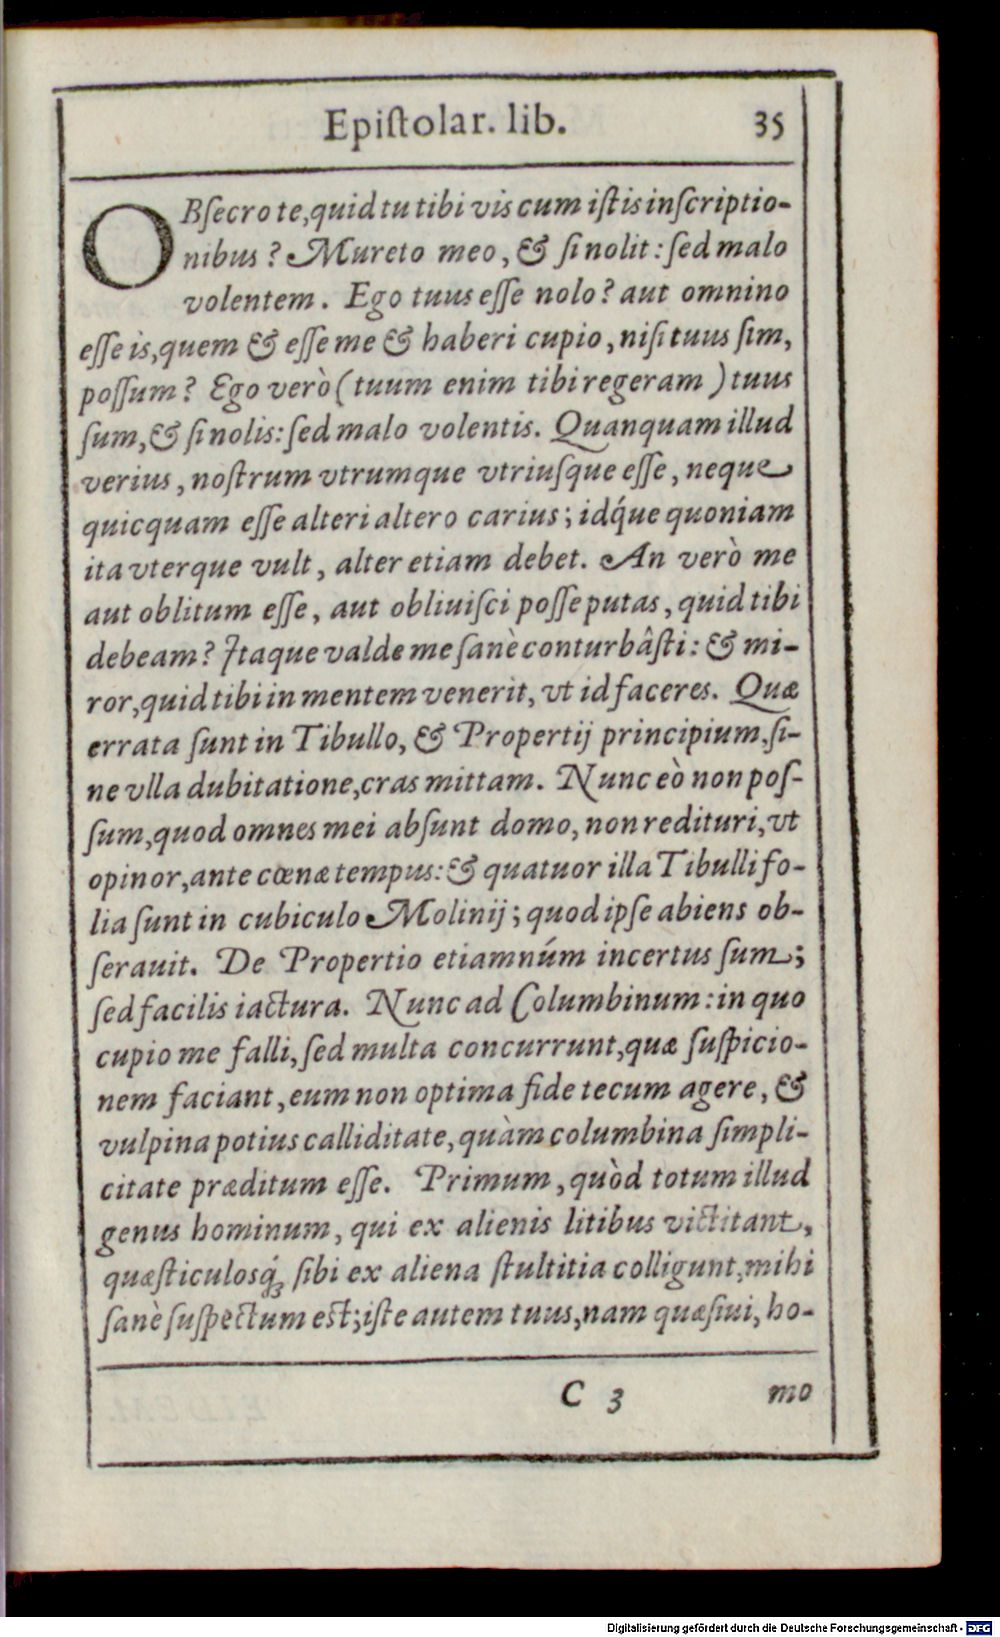 Epiſtolar. lib. 35
OBſecro te, quid tu tibi vis cum iſtis inſcriptio-
nibus? Mureto meo, & ſi nolit: ſed malo
volentem. Ego tuus eſſe nolo? aut omnino
eſſe is, quem & eſſe me & haberi cupio, niſi tuus ſim,
poſſum? Ego verò (tuum enim tibi regeram) tuus
ſum, & ſi nolis: ſed malo volentis. Quanquam illud
verius, noſtrum vtrumque vtriuſque eſſe, neque
quicquam eſſe alteri altero carius; idq́ue quoniam
ita vterque vult, alter etiam debet. An verò me
aut oblitum eſſe, aut obliuiſci poſſe putas, quid tibi
debeam? Itaque valde me ſanè conturbâſti: & mi-
ror, quid tibi in mentem venerit, vt id faceres. Quæ
errata ſunt in Tibullo, & Propertij principium, ſi-
ne vlla dubitatione, cras mittam. Nunc eò non poſ-
ſum, quod omnes mei abſunt domo, non redituri, vt
opinor, ante cœnæ tempus: & quatuor illa Tibulli fo-
lia ſunt in cubiculo Molinij; quod ipſe abiens ob-
ſerauit. De Propertio etiamnúm incertus ſum;
ſed facilis iactura. Nunc ad Columbinum: in quo
cupio me falli, ſed multa concurrunt, quæ ſuſpicio-
nem faciant, eum non optima fide tecum agere, &
vulpina potius calliditate, quàm columbina ſimpli-
citate præditum eſſe. Primum, quòd totum illud
genus hominum, qui ex alienis litibus victitant,
quæſticuloſq́ꝫ ſibi ex aliena ſtultitia colligunt, mihi
ſanè ſuſpectum eſt; iſte autem tuus, nam quæſiui, ho-
C 3 mo
Digitalisierung gefördert durch die Deutsche Forschungsgemeinschaft - DFG